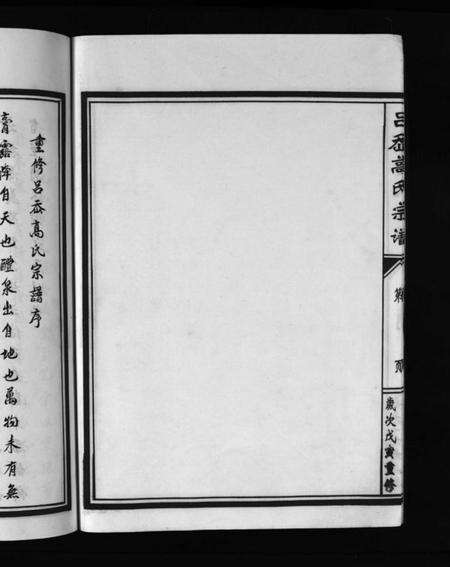 呂岙高氏宗譜
歲次戊寅重修
重修呂岙高氏宗譜序
膏露降自天也醴泉出自地也萬物未有無